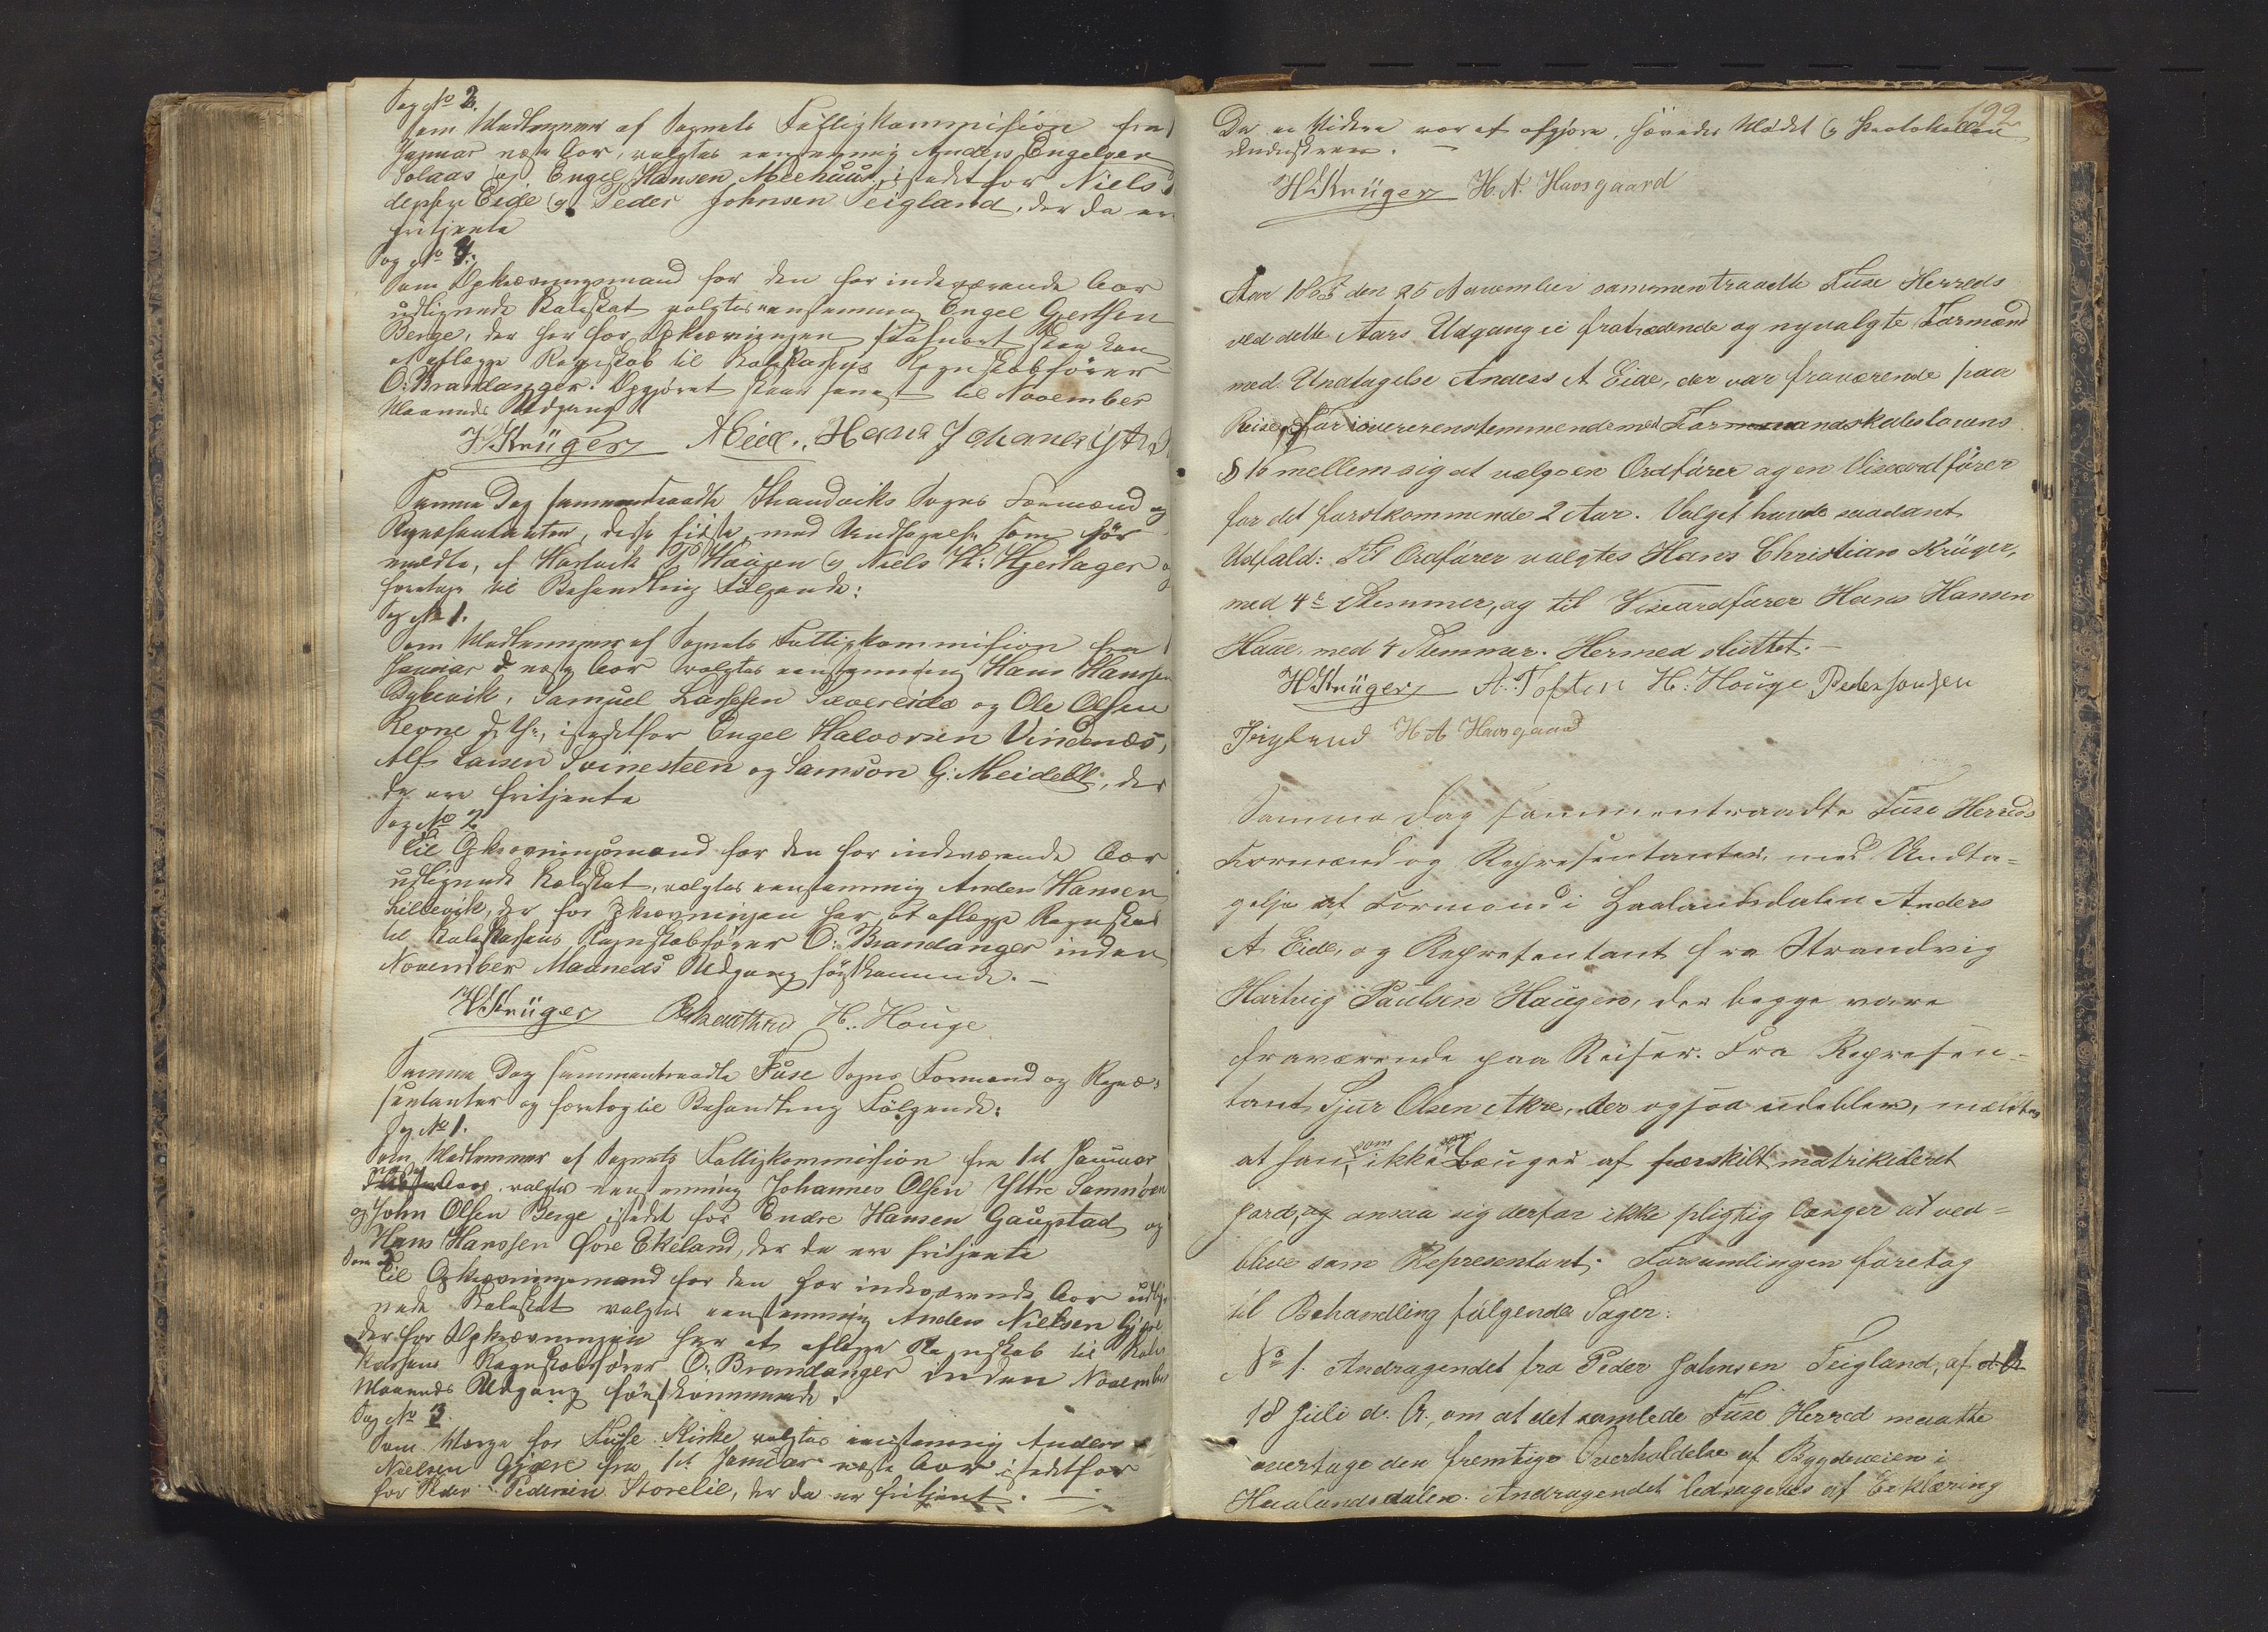 Sag No 2.
Som Medlemmer af Sognets Fattigkommission fra
Januar næste Aar, valgtes eenstemmig Anders Engelsen
Solaas og Engel Hansen Meehuus, istedetfor Niels
Eide og Peder Johnsen Teigland, der da ere
fritjente
Sag No 4.
Som Opkrævningsmand for den for indeværende Aar
udlignede Kaleskat valgtes eenstemmig Engel Gjertsen
Berge, der har for Opkrævningen
at aflægge Regnskab til Regnskabsfører
O. Brandanger. Opgjøret skeer senest til November
Maaneds Udgang
HKrüger AEide. Hans Johanes
Samme Dag sammentraadte Strandviks Sogns Formænd og
Repræsentanter, disse sidste, med Undtagelse som før
meldte, af Hartvik P Haugen og Niels Hjertager og
foretoge til Behandling Følgende:
Sag No 1.
Som Medlemmer af Sognets Fattigkommission fra 1
Januar næste Aar valgtes eenstemmig Hans Hansen
Bykevik, Samuel Larssen Sævereide og Ole Olsen
Revne istedetfor Engel Halvorsen Vindenæs,
Alf Larsen Svinesteen og Samson G: Meidell, der
da ere fritjente
Sag No 2
Til Opkrævningsmand for den for indeværende Aar
udlignede Kaleskat, valgtes eenstemmig Anders Hansen
Lillevik, der for Opkrævningen har at aflægge Regnskab
til Regnskabsfører O: Brandanger inden
November Maaneds Udgang førstkommende. –
HKrüger H.. Houge
Samme Dag sammentraadte Fuse Sogns Formænd og Repræ:
sentanter og foretog til Behandling Følgende:
Sag No 1.
Som Medlemmer af Sognets Fattigkommission fra 1st Januar
næste Aar, valgtes eenstemmig Johannes Olsen Yttre Samnøen
og John Olsen Berge istedet for Endre Hansen Gaupstad og
Hans Hanssen Øvre Ekeland, der da ere fritjente
Til Opkrævningsmand for den for indeværende Aar udlig
nede Kaleskat valgtes eenstemmig Anders Nielsen Gjære
der for Opkrævningen har at aflægge Regnskab til
Regnskabsfører O: Brandanger inden November
Maaneds Udgang førstkommende.
Sag No 3.
Som Værge for Fuse Kirke valgtes eenstemmig Anders
Nielsen Gjære fra 1st Januar næste Aar istedetfor
for Peder Pedersen Storelie, der da er fritjent. –
199
Da ei Videre var at afgjøre, hævedes Mødet og Protokollen
underskreven. –
HKrüger H. A. Havsgaard
Aar 1865 den 25 November sammentraadte Fuse Herreds
ved dette Aars Udgang ei fratrædende og nyvalgte Formænd
med Undtagelse Anders A Eide, der var fraværende paa
Reise, for i overenstemmende med Formandskabslovens
§ 16 mellem sig at vælge en Ordfører og en Viseordfører
for det førstkommende 2 Aar. Valget havde saadant
Udfald: Til Ordfører valgtes Hans Christian Krüger,
med 4r Stemmer, og til Viseordfører Hans Hansen
Haue med 4 Stemmer. Hermed sluttet. –
HKrüger A. Toften H: Houge Peder Jonsen
Teigland H A Havsgaard
Samme Dag sammentraadte Fuse Herreds
Formænd og Represetanter, med Undta=
gelse af Formand i Haalandsdalen Anders
A Eide, og Represetant fra Strandvig
Hartvig Paulsen Haugen, der begge vare
fraværende paa Reiser. Fra Represen=
tant Sjur Olsen Akre, der ogsaa udeblev, meldtes
at han, som ikke Længer af særskilt matrikuleret
Jord, og ansaa sig derfor ikke pligtig længer at ved=
blive som Representant. Forsamlingen foretog
til Behandling følgende Sager:
No 1. Andragendet fra Peder Johnsen Teigland, af
18 Juli d. A., om at det samlede Fuse Herred maatte
overtage den fremtige Overholdelse af Bygdeveien i
Haalandsdalen. Andragendet ledsagedes af Erklæring